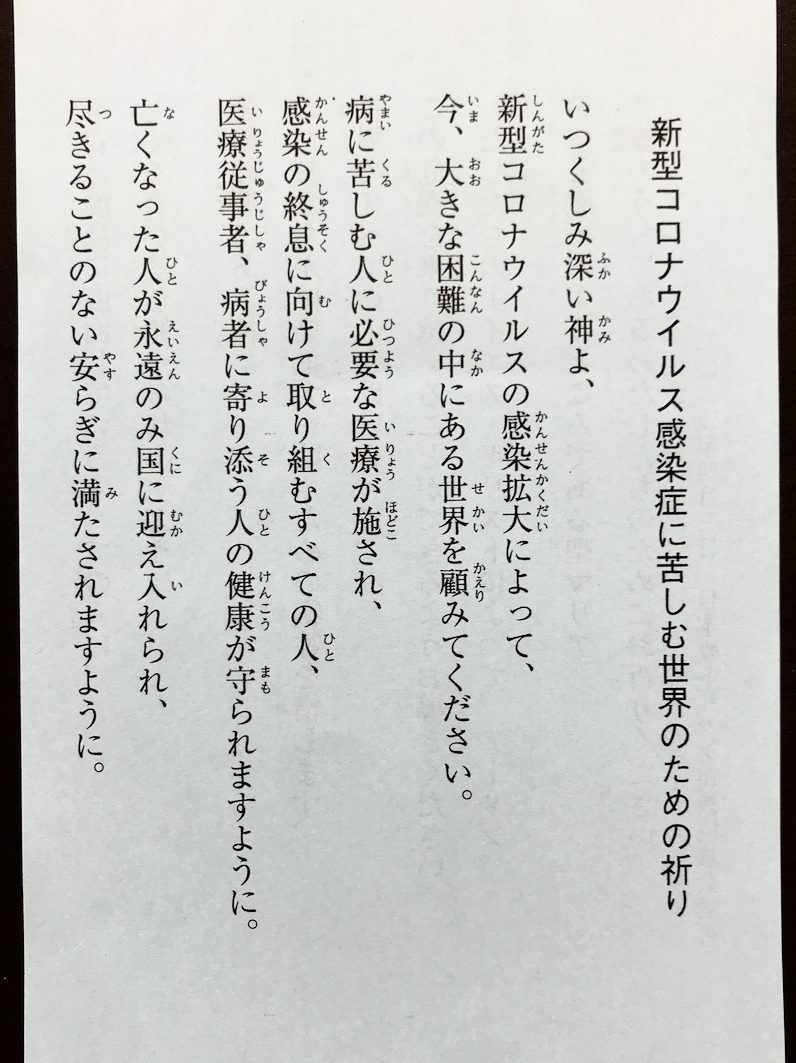 新型コロナウイルス感染症に苦しむ世界のための祈り
いつくしみ深い神よ、
新型コロナウイルスの感染拡大によって、
今、大きな困難の中にある世界を顧みてください。
病に苦しむ人に必要な医療が施され、
感染の終息に向けて取り組むすべての人、
医療従事者、病者に寄り添う人の健康が守られますように。
亡くなった人が永遠のみ国に迎え入れられ、
尽きることのない安らぎに満たされますように。